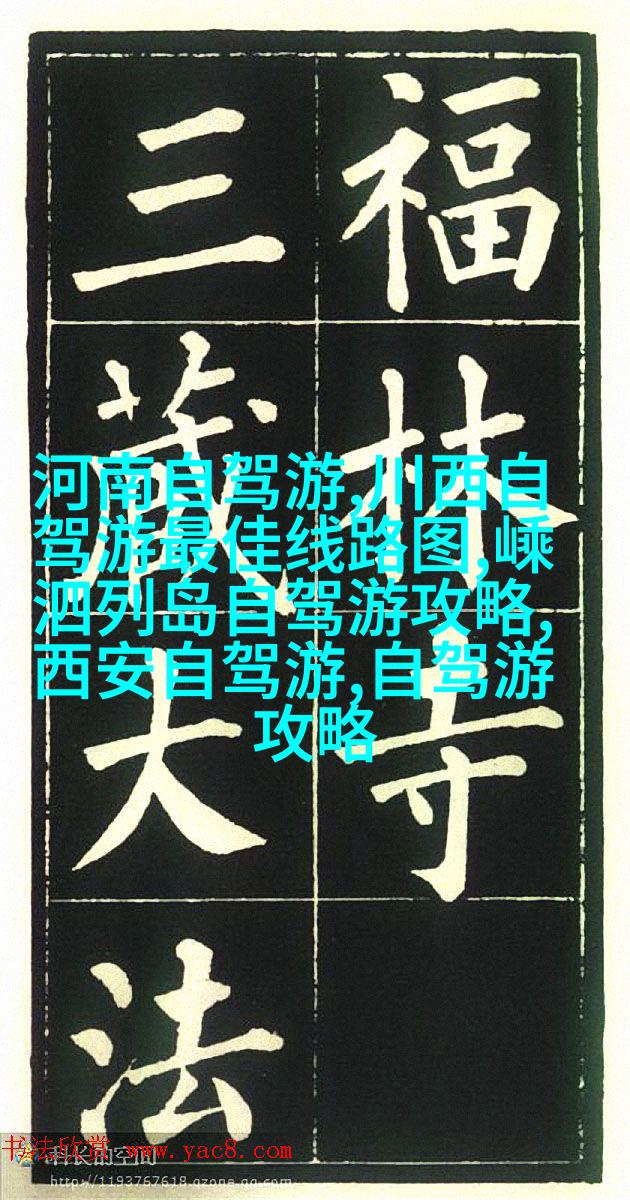 福林寺
三藏大法
河南自驾游,川西自
驾游最佳线路图,嵊
泗列岛自驾游攻略,
西安自驾游,自驾游
攻略
书法欣赏 www.yac8.com
科长的空间
http://1193767618.qzone.qq.com